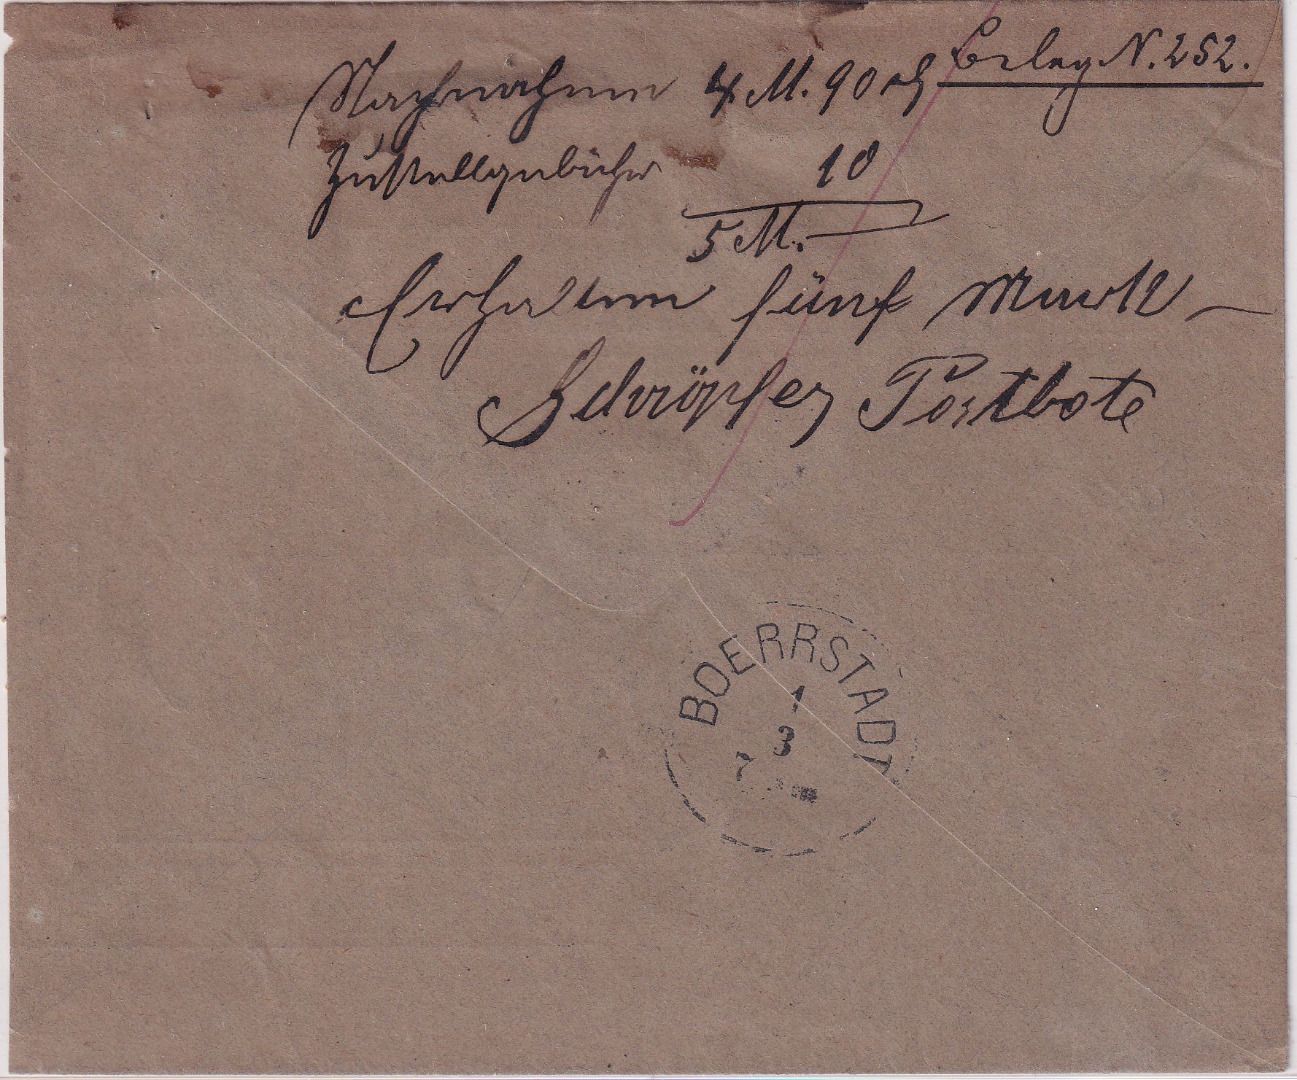 Beleg N. 252.
Nachnahme 4 M. 90 ₰
Zustellgebühr 10
5 M. —
Erhalten fünf Mark —
Schröpfer Postbote
BOERRSTADT
1
3
7